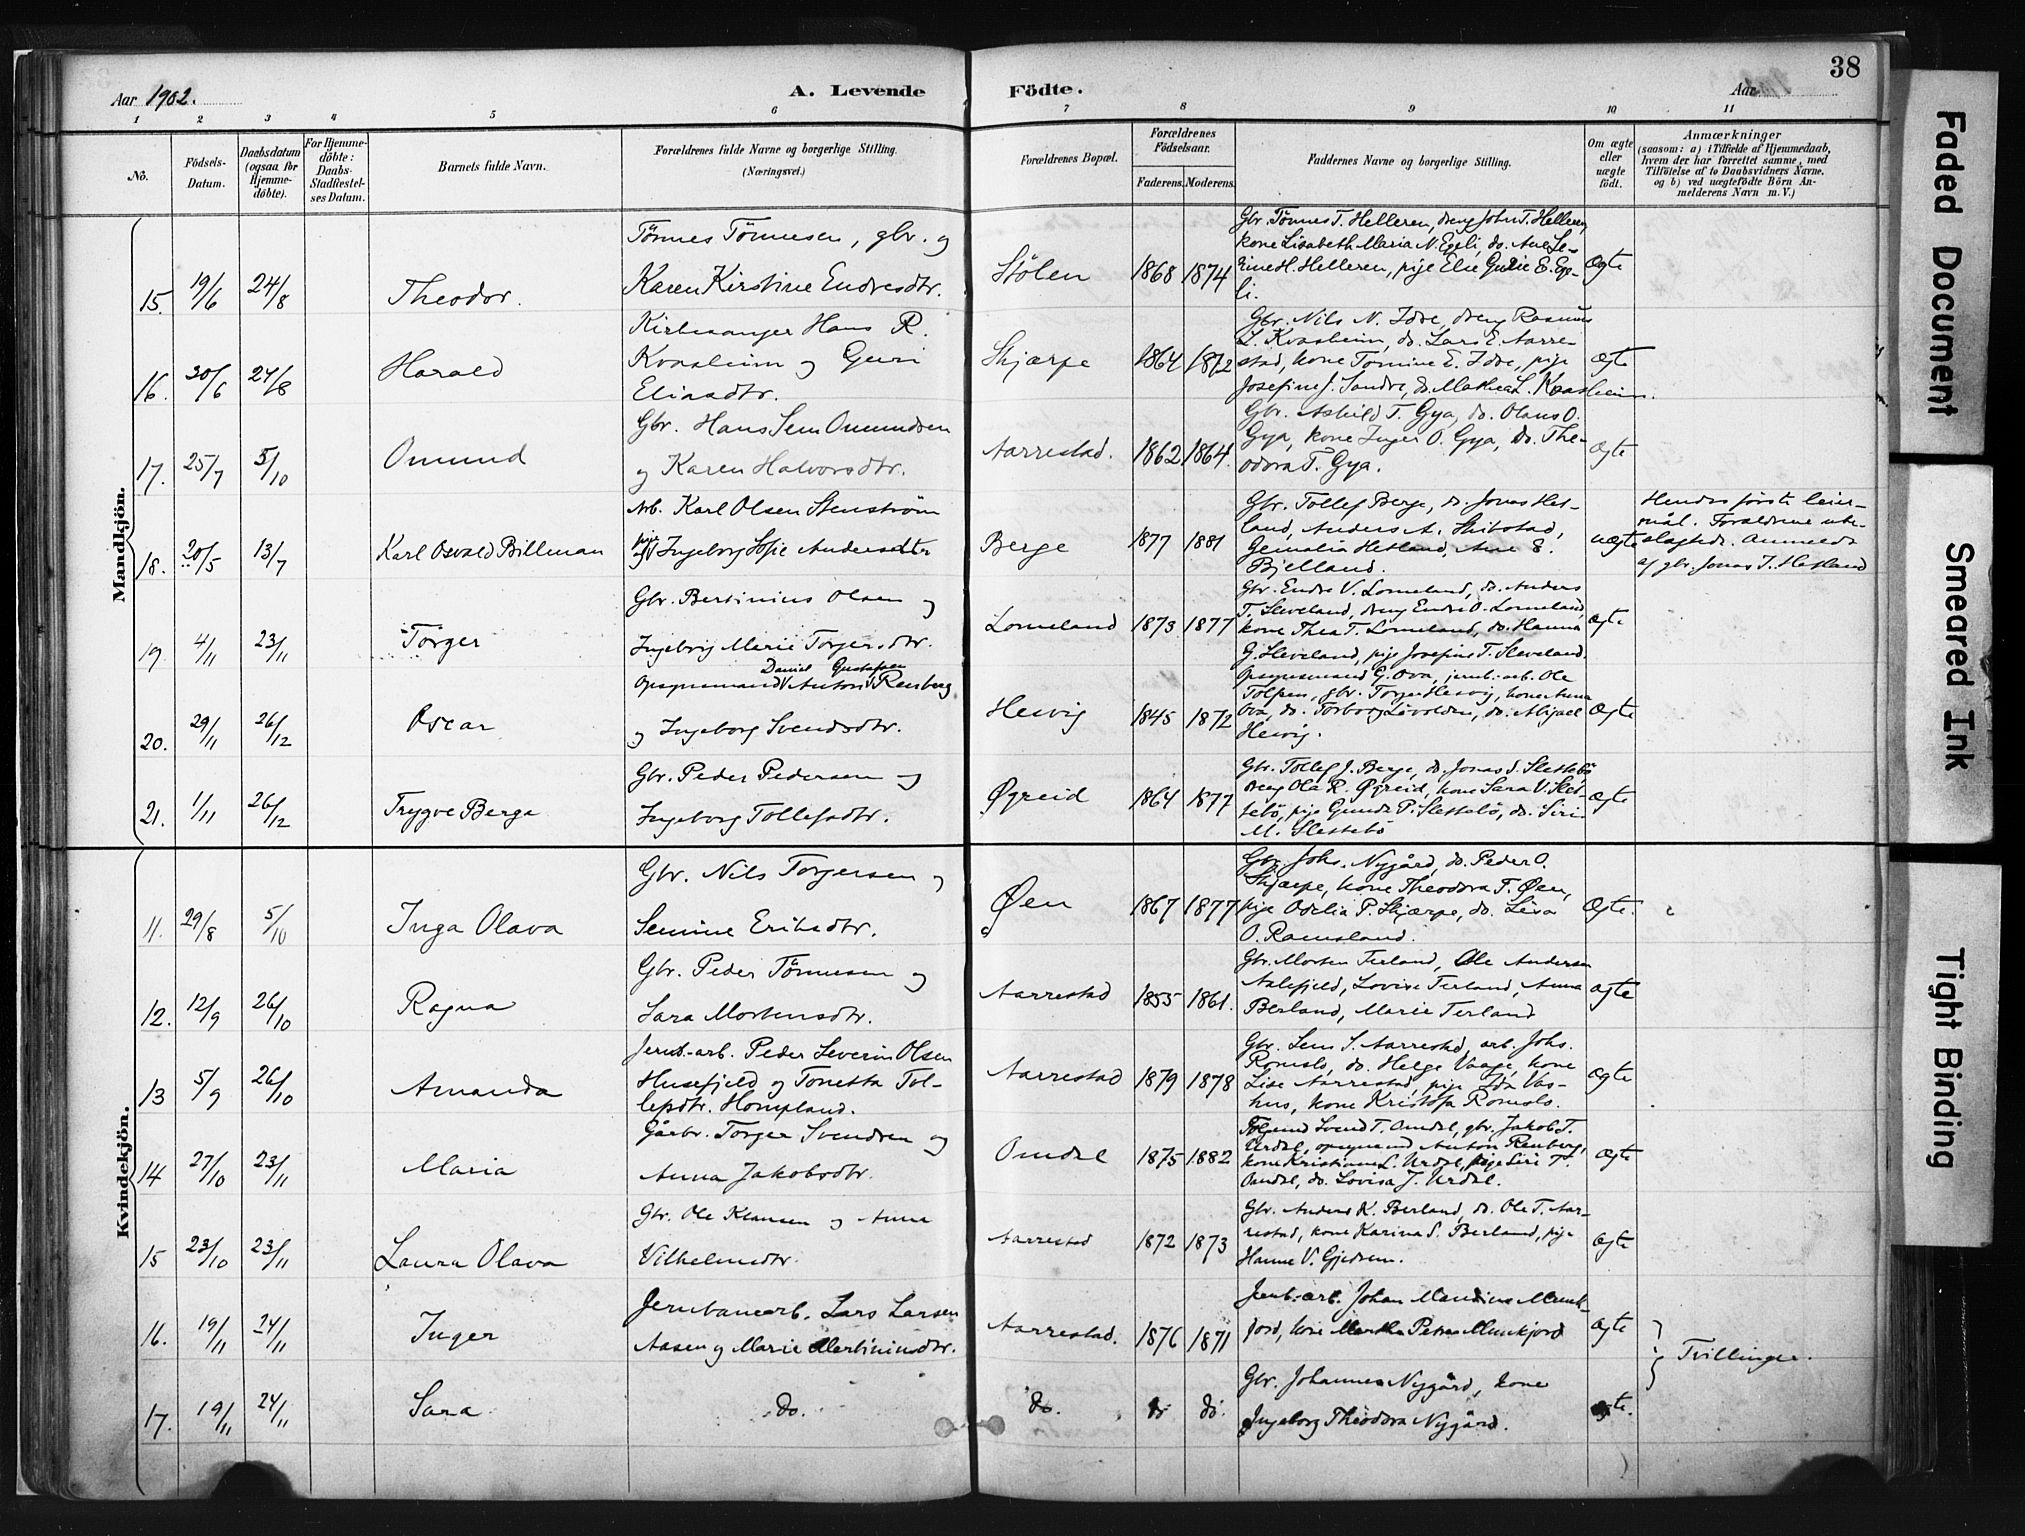 38
Aar 1902.
A. Levende Födte.
Aar
1 2 3 4 5 6 7 8 9 10 11
No.
Födsels-Datum.
Daabsdatum (ogsaa for Hjemme-döbte).
For Hjemme-döbte: Daabs-Stadfæstel-ses Datum.
Barnets fulde Navn.
Forældrenes fulde Navne og borgerlige Stilling. (Næringsvei.)
Forældrenes Bopæl.
Forældrenes Födselsaar.
Faderens. Moderens.
Faddernes Navne og borgerlige Stilling.
Om ægte eller uægte født.
Anmærkninger
(saasom: a) i Tilfælde af Hjemmedaab, hvem der har forrettet samme, med Tilföielse af to Daabsvidners Navne, og b) ved uægtefödte Börn An-melderens Navn m. V.)
Mandkjön.
15. 19/6 24/8 Theodor.
Tönnes Tönnesen, gbr. og
Karen Kirstine Endresdtr.
Stölen 1868 1874
Gbr. Tönnes T. Helleren, dreng John T. Helleren,
kone Lisabeth Maria N. Egeli, do. Ane Se-
rine H. Helleren, pige Elie Gurie E. Ege-
li.
Ægte
16. 20/6 24/8 Harald
Kirkesanger Hans R.
Kvasheim og Guri
Eliasdtr.
Skjærpe 1864 1872
Gbr. Nils N. Idse, dreng Rasmus
L. Kvasheim, do. Lars E. Aarre-
stad, kone Tomine E. Idse, pige
Josefine J. Sandve, do. Mathea L. Kvasheim.
Ægte
17. 25/7 5/10 Omund
Gbr. Hans Sem Omundsen
og Karen Halvorsdtr.
Aarrestad. 1862 1864.
Gbr. Askild T. Gya, do. Olaus O.
Gya, kone Inger O. Gya, do. The-
odora T. Gya.
Ægte
18. 20/5 13/7 Karl Osvald Billman
Arb. Karl Olsen Stenström
og pige Ingeborg Sofie Andersdtr
Berge 1877 1881
Gbr. Tollef Berge, do. Jonas Het-
land, Anders A. Skibstad,
Gemalia Hetland, Ane E.
Bjelland.
uægte
Hendes første leier-
mål. Forældrene ube-
slægtede. Anmeldt
af gbr. Jonas J. Hetland
19. 4/11 23/11 Torger
Gbr. Bertinius Olsen og
Ingeborg Marie Torgersdtr.
Lomeland 1873 1877
Gbr. Endre V. Lomeland, do. Anders
T. Sleveland, dreng Endre O. Lomeland,
kone Thea T. Lomeland, do. Hanna
G. Sleveland, pige Josefine T. Sleveland.
Ægte
20. 29/11 26/12 Oscar
Daniel Gustafsen
Opsynsmand Anton Renberg
og Ingeborg Svendsdtr.
Hesvig 1845 1872
Opsynsmand G. Ova, jernb. arb. Ole
Tolfsen, gbr. Torger Hesvig, kone Anna
Ova, do. Torborg Løvolden, do. Abigael
Hesvig.
Ægte
21. 1/11 26/12 Trygve Berge
Gbr. Peder Pedersen og
Ingeborg Tollefsdtr.
Øgreid 1864 1877
Gbr. Tollef J. Berge, do. Jonas S. Slettebö
dreng Ola R. Øgreid, kone Sara V. Slet-
tebö, pige Gunde P. Slettebö, do. Siri
M. Slettebö
Ægte
Kvindekjön.
11. 29/8 5/10 Inga Olava
Gbr. Nils Torgersen og
Semine Eriksdtr.
Øen 1867 1877
Gbr. Johs. Nygård, do. Peder O.
Skjærpe, kone Theodora T. Øen,
pige Odelia P. Skjærpe, do. Lisa
O. Ramsland.
Ægte.
12. 12/9 26/10 Ragna
Gbr. Peder Tönnesen og
Sara Mortensdtr.
Aarrestad 1855 1861.
Gbr. Morten Terland, Ole Andersen
Aslefjeld, Lovise Terland, Anna
Berland, Marie Terland
Ægte
13 5/9 26/10 Amanda
Jernb.-arb. Peder Severin Olsen
Husefjeld og Tonetta Tol-
lefsdtr. Hompland.
Aarrestad 1879 1878
Gbr. Sem S. Aarrestad, arb. Johs.
Romslo, do. Helge Vaage, kone
Lise Aarrestad, pige Ida Vas-
hus, kone Kristofa Romslo.
Ægte
14 27/10 23/11 Maria
Gårbr. Torger Svendsen og
Anna Jakobsdtr.
Omdal 1875 1882
Svend T. Omdal, gbr. Jakob T.
Urdal, opsynsmd Anton Renberg,
kone Kristiane L. Urdal, pige Siri T.
Omdal, do. Lovisa J. Urdal.
Ægte
15 23/10 23/11 Laura Olava
Gbr. Ole Klausen og Anna
Vilhelmsdtr.
Aarrestad 1872 1873
Gbr. Anders K. Berland, do. Ole T. Aar-
restad, kone Karina S. Berland, pige
Hanne V. Gjedrem.
Ægte
16. 19/11 24/11 Inger
Jernbanearb. Lars Larsen
Aasen og Marie Martiniusdtr.
Aarrestad. 1876 1871
Jernb.-arb. Johan Maudius Munk-
jord, kone Martha Petra Munkjord
Ægte
Tvillinger.
17. 19/11 24/11 Sara
do.
do. do do.
Gbr. Johannes Nygård, kone
Ingeborg Theodora Nygård.
ægte.
Faded Document
Smeared Ink
Tight Binding